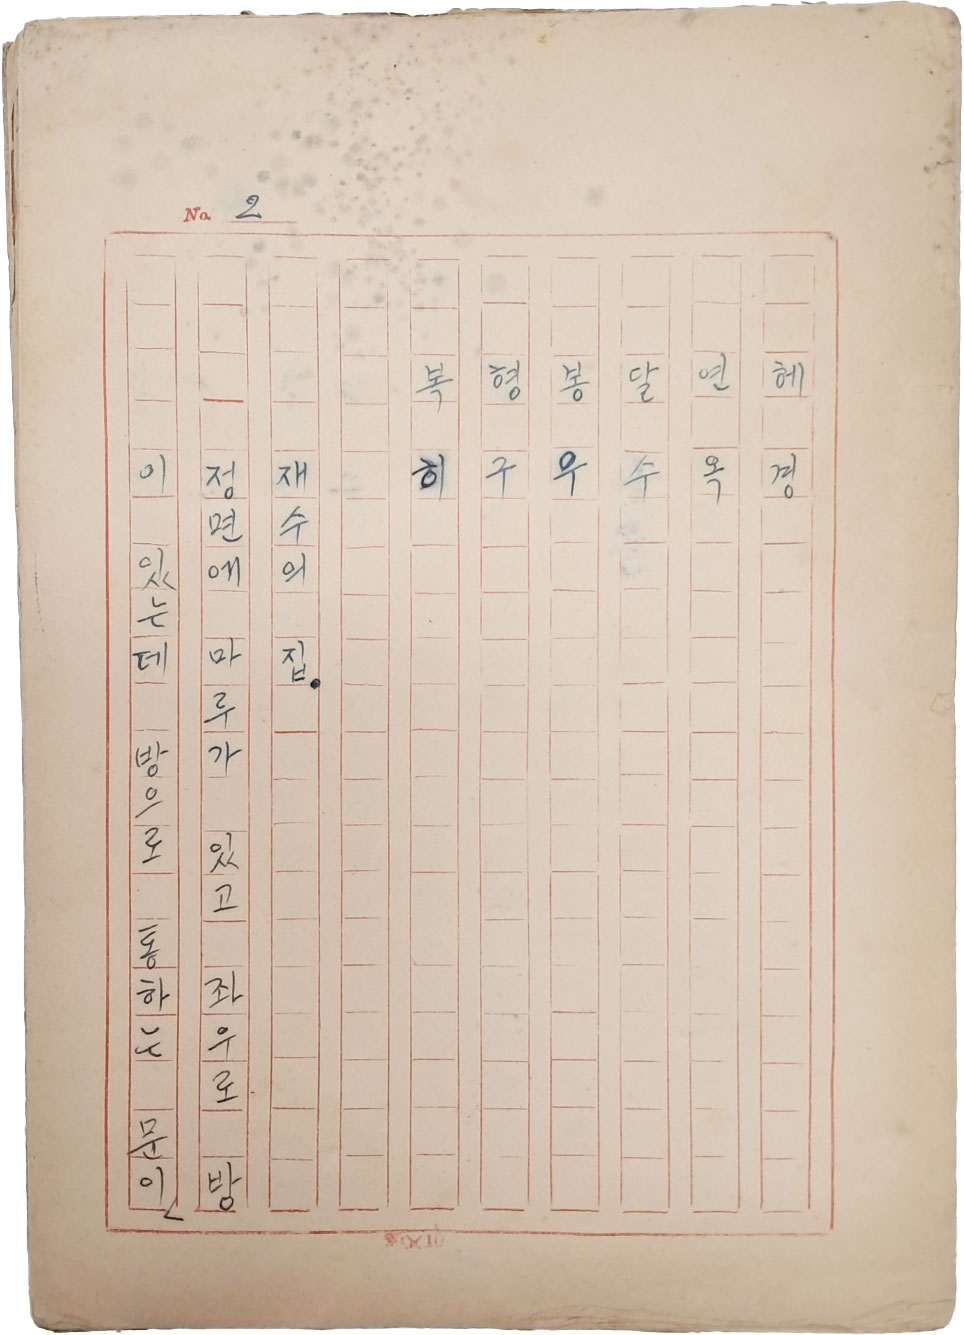 No. 2
혜 경
연 옥
달 수
봉 우
형 구
복 히
재수의 집.
정면에 마루가 있고 좌우로 방
이 있는데 방으로 통하는 문이